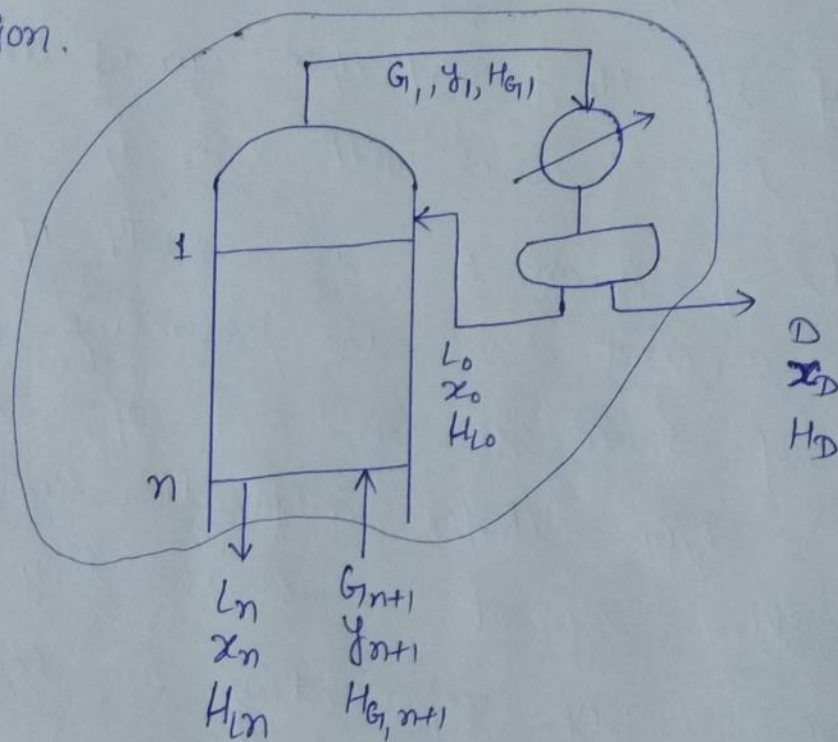 ion.
G₁, y₁, H_G₁
1
L₀
x₀
H_L₀
D
x_D
H_D
n
Lₙ
xₙ
H_Lₙ
Gₙ₊₁
yₙ₊₁
H_G,ₙ₊₁